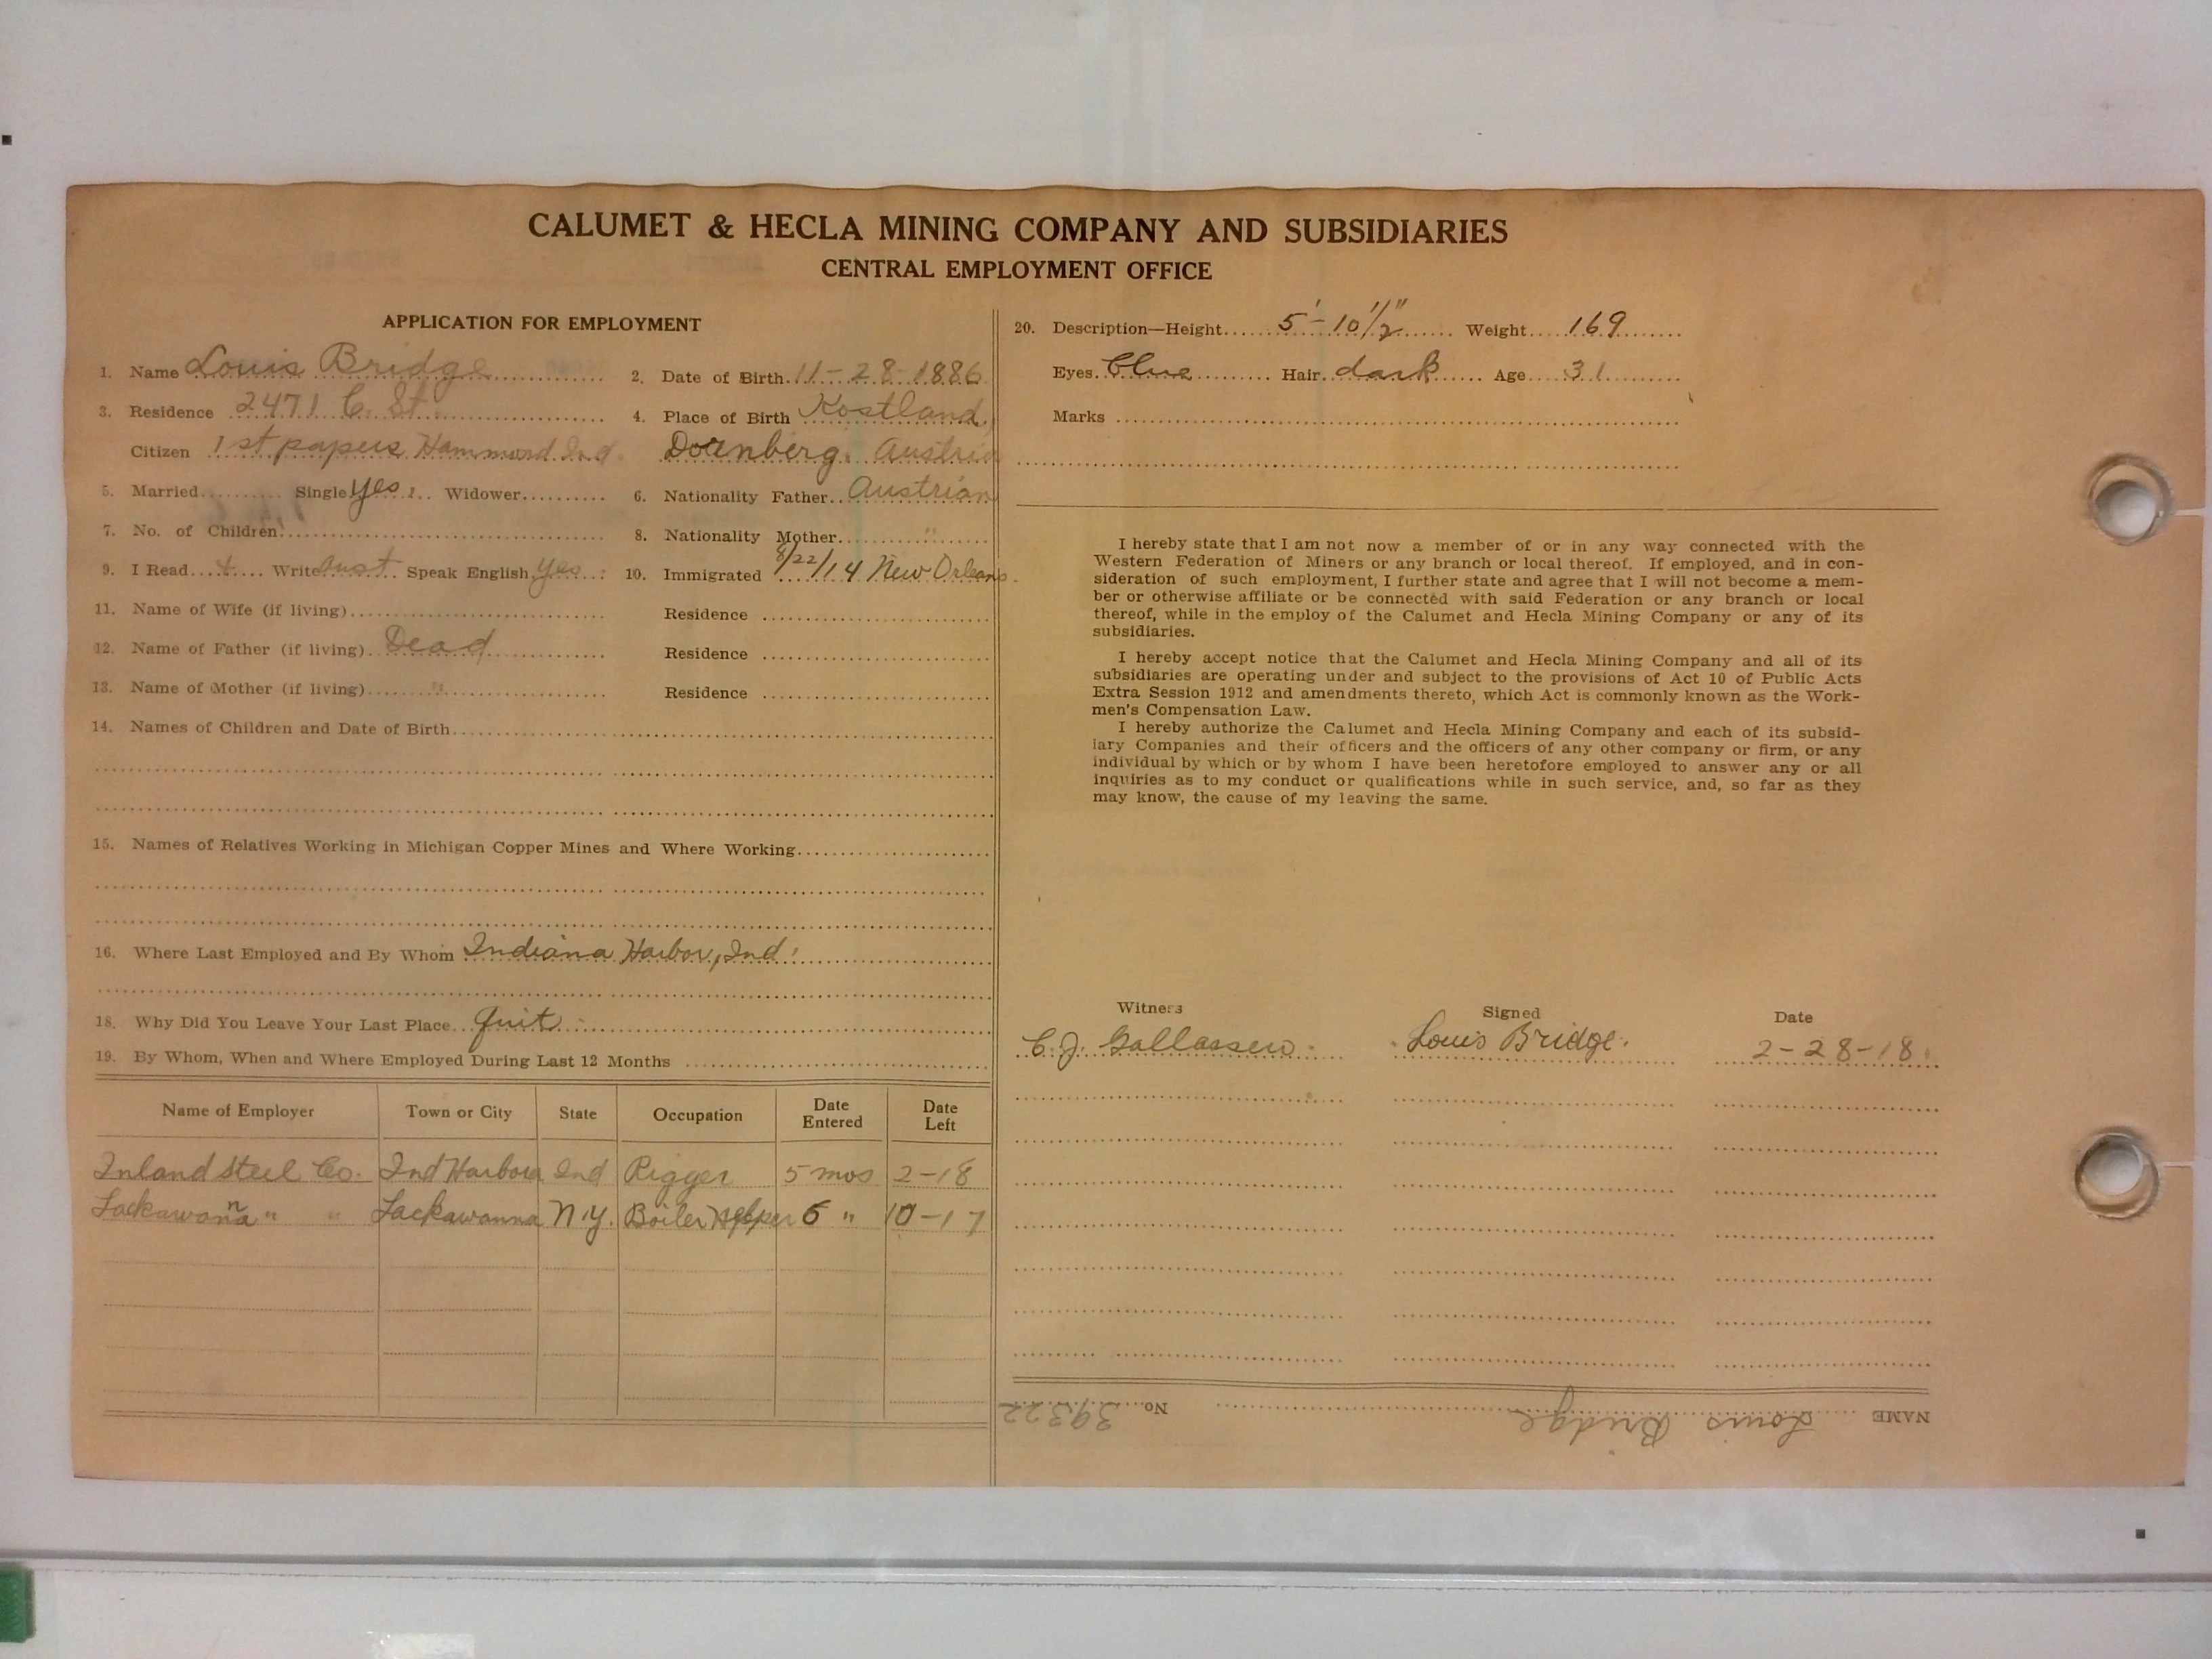 CALUMET & HECLA MINING COMPANY AND SUBSIDIARIES
CENTRAL EMPLOYMENT OFFICE
APPLICATION FOR EMPLOYMENT
1. Name Louis Bridge 2. Date of Birth 11-28-1886
3. Residence 2471 C. St. 4. Place of Birth Kostland,
Citizen 1st papers Hammond Ind. Dornberg. Austria
5. Married Single yes Widower 6. Nationality Father Austrian
7. No. of Children 8. Nationality Mother "
9. I Read & Write Aust Speak English yes 10. Immigrated 8/22/14 New Orleans.
11. Name of Wife (if living) Residence
12. Name of Father (if living) Dead Residence
13. Name of Mother (if living) " Residence
14. Names of Children and Date of Birth
15. Names of Relatives Working in Michigan Copper Mines and Where Working
16. Where Last Employed and By Whom Indiana Harbor, Ind.
18. Why Did You Leave Your Last Place quit
19. By Whom, When and Where Employed During Last 12 Months
Name of Employer Town or City State Occupation Date Entered Date Left
Inland Steel Co. Ind Harbor Ind Rigger 5 mos 2-18
Lackawanna " " Lackawanna N.Y. Boiler Helper 6 " 10-17
20. Description—Height 5'-10 1/2" Weight 169
Eyes blue Hair dark Age 31
Marks
I hereby state that I am not now a member of or in any way connected with the
Western Federation of Miners or any branch or local thereof. If employed, and in con-
sideration of such employment, I further state and agree that I will not become a mem-
ber or otherwise affiliate or be connected with said Federation or any branch or local
thereof, while in the employ of the Calumet and Hecla Mining Company or any of its
subsidiaries.
I hereby accept notice that the Calumet and Hecla Mining Company and all of its
subsidiaries are operating under and subject to the provisions of Act 10 of Public Acts
Extra Session 1912 and amendments thereto, which Act is commonly known as the Work-
men's Compensation Law.
I hereby authorize the Calumet and Hecla Mining Company and each of its subsid-
iary Companies and their officers and the officers of any other company or firm, or any
individual by which or by whom I have been heretofore employed to answer any or all
inquiries as to my conduct or qualifications while in such service, and, so far as they
may know, the cause of my leaving the same.
Witness Signed Date
C. J. Louis Bridge. 2-28-18.
NAME Louis Bridge No. 39322